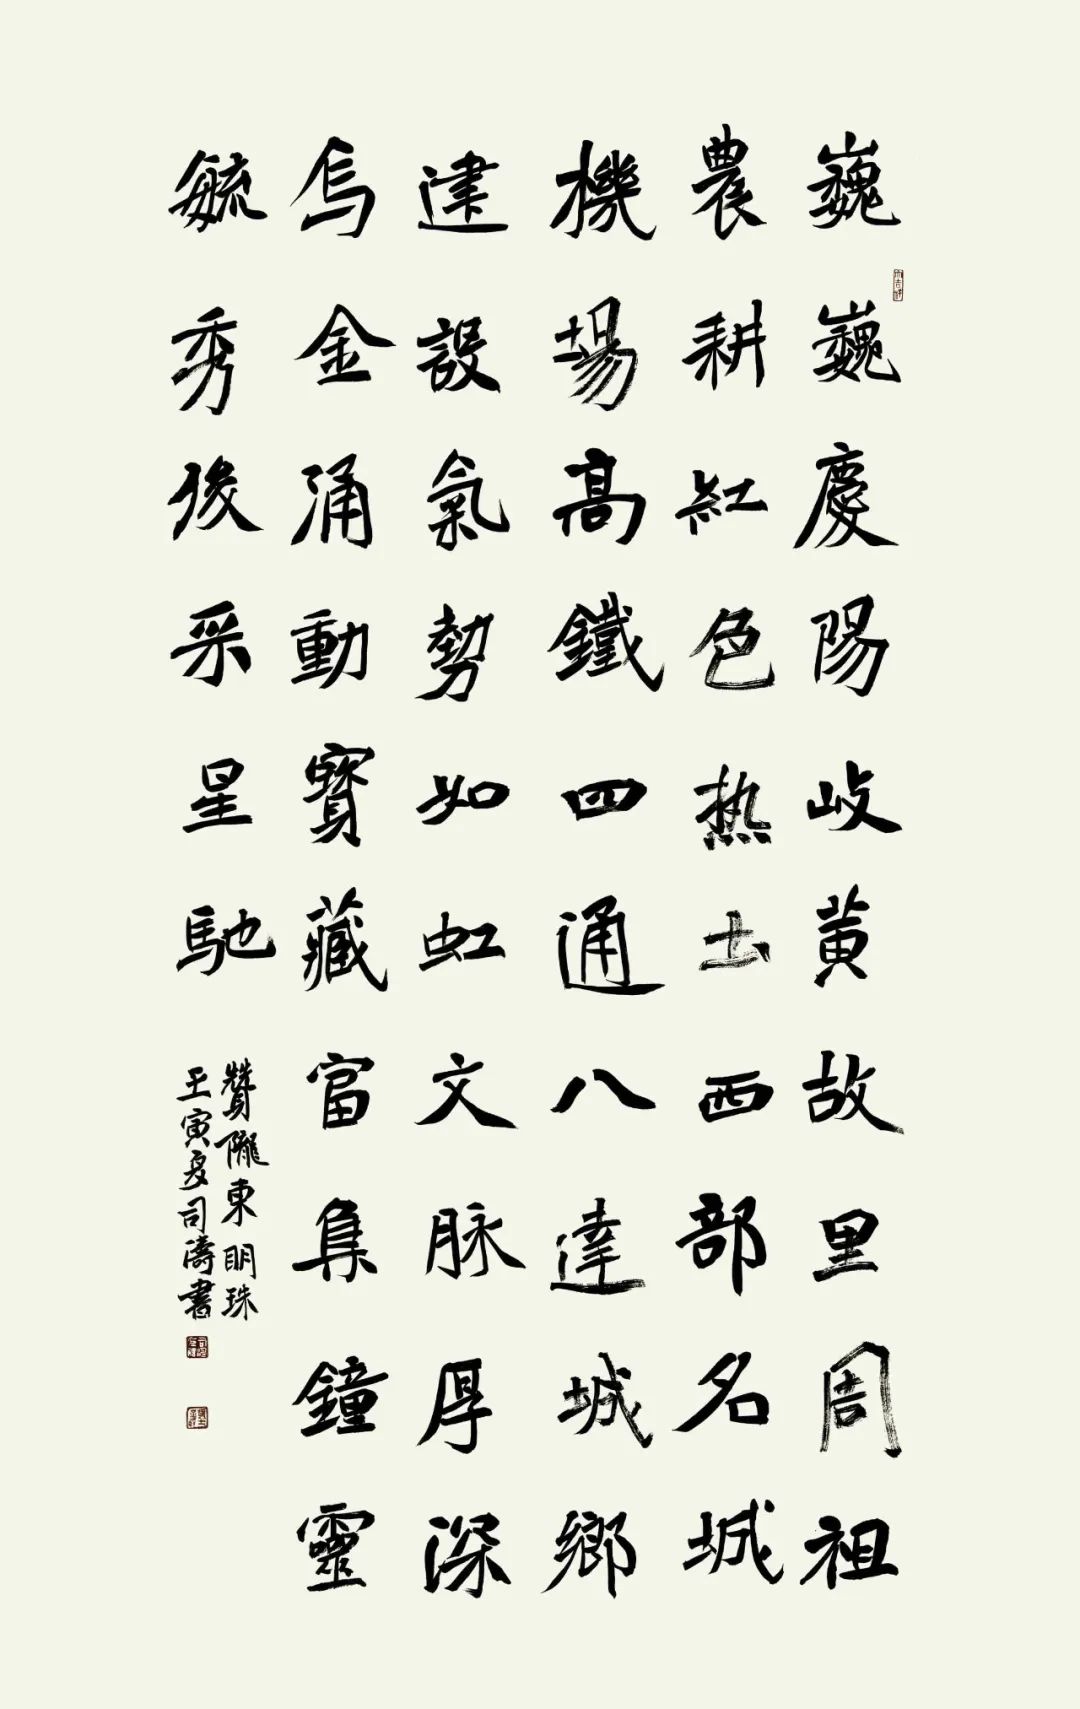 巍巍慶陽岐黄故里周祖
農耕紅色热土西部名城
機場高鐵四通八達城鄉
建設氣勢如虹文脉厚深
烏金涌動寳藏富集鐘靈
毓秀俊采星馳
贊隴東明珠
壬寅夏司濤書